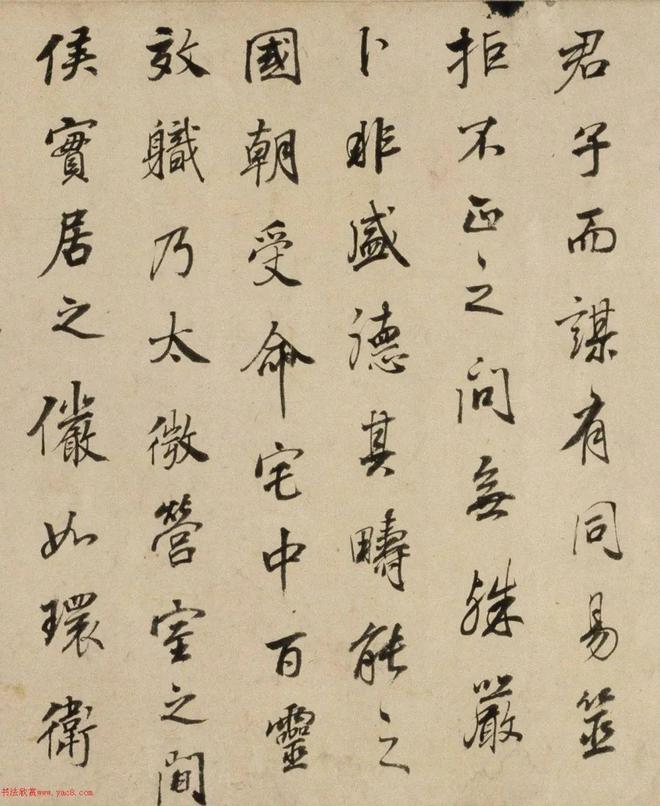 君子而謀有同易筮
拒不正之問無殊嚴
卜非盛德其疇能之
國朝受命宅中百靈
效職乃太微營室之間
侯實居之儼如環衛
书法欣赏www.yac8.com